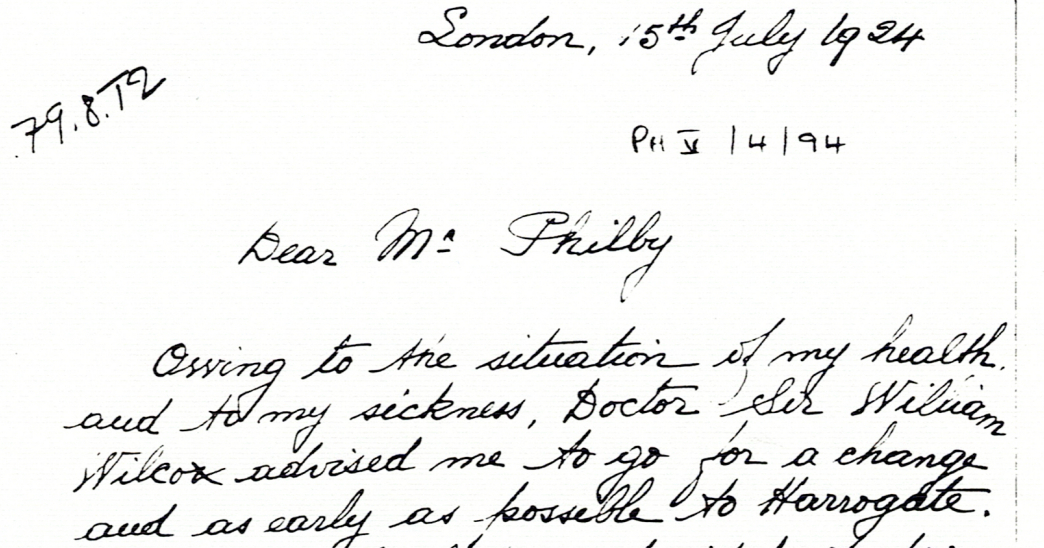 London, 15th July 1924
79.8.T2
PH V /4/94
Dear Mr Philby
Owing to the situation of my health,
and to my sickness, Doctor Sir William
Wilcox advised me to go for a change
and as early as possible to Harrogate.